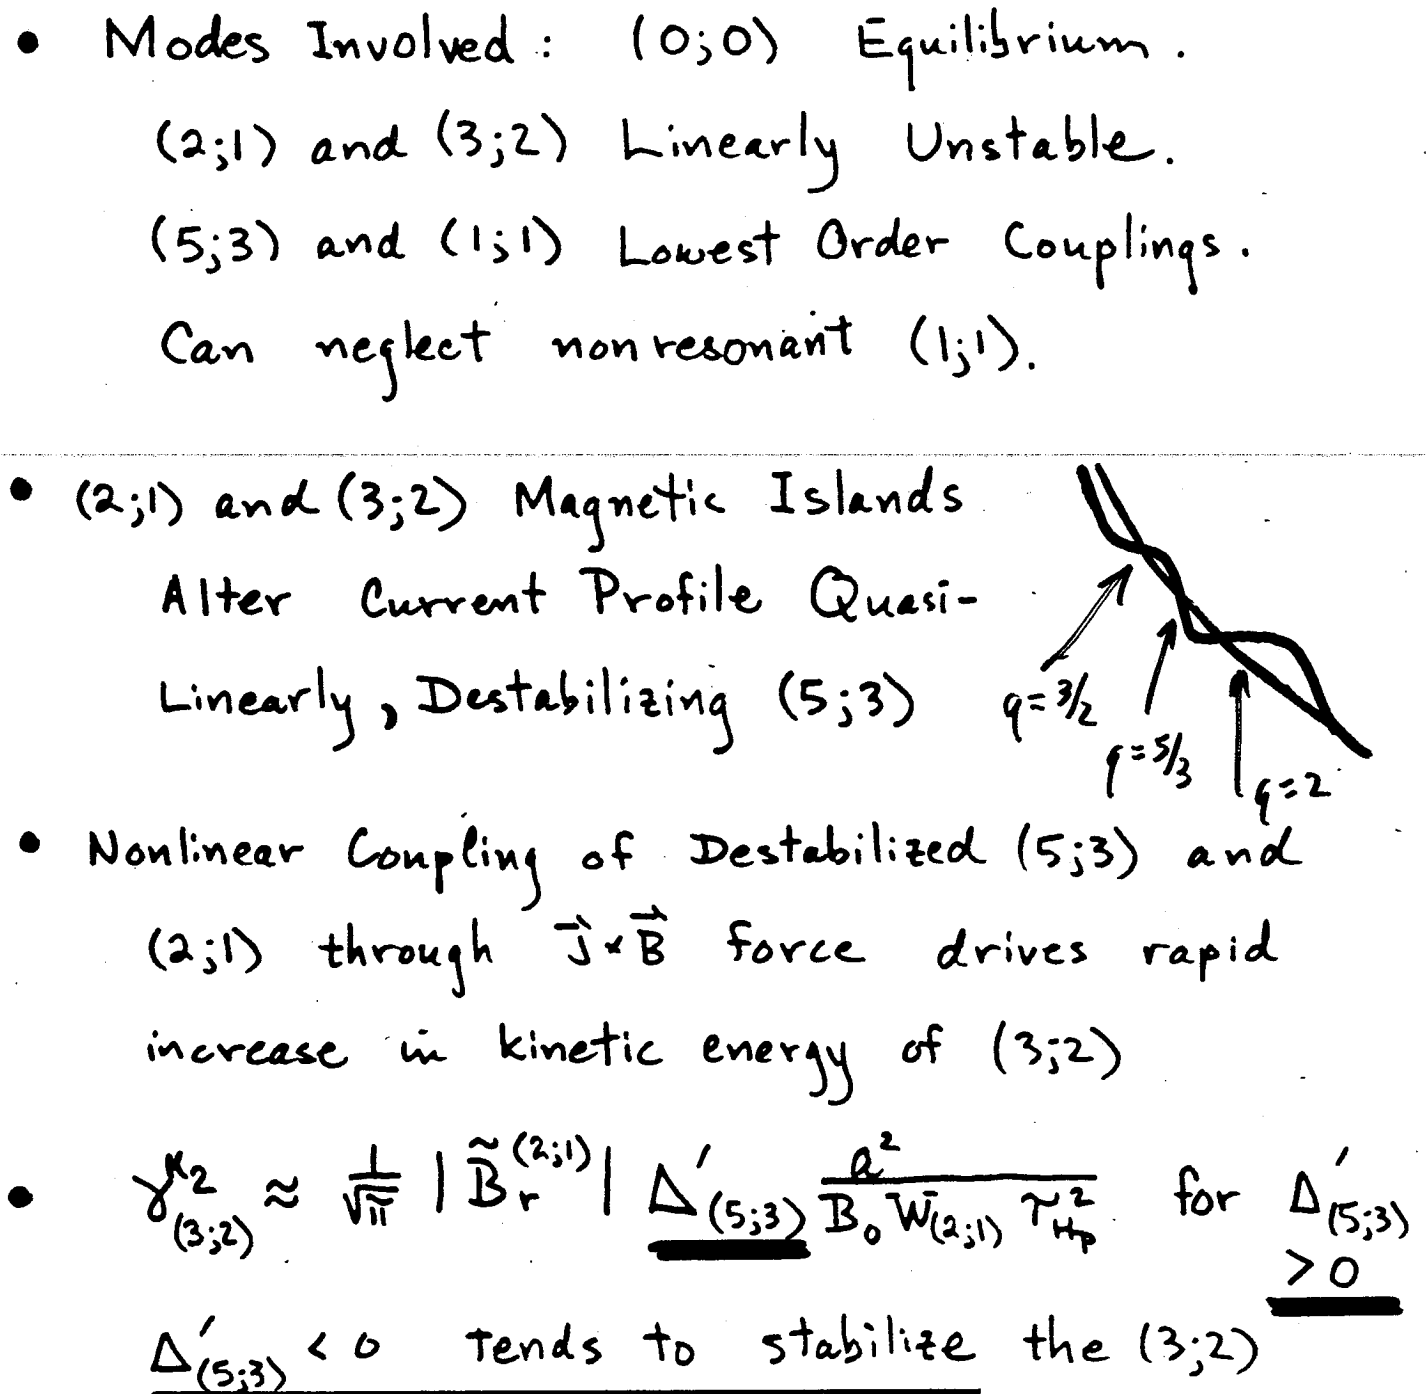 • Modes Involved : (0;0) Equilibrium.
(2;1) and (3;2) Linearly Unstable.
(5;3) and (1;1) Lowest Order Couplings.
Can neglect nonresonant (1;1).
• (2;1) and (3;2) Magnetic Islands
Alter Current Profile Quasi-
Linearly, Destabilizing (5;3)
q=3/2
q=5/3
q=2
• Nonlinear Coupling of Destabilized (5;3) and
(2;1) through J⃗×B⃗ force drives rapid
increase in kinetic energy of (3;2)
• γ²₍₃;₂₎ ≈ 1/√π |B̃ᵣ^(2;1)| Δ′₍₅;₃₎ a²/(B₀ W₍₂;₁₎ τ²_Hp) for Δ′₍₅;₃₎
> 0
Δ′₍₅;₃₎ < 0 tends to stabilize the (3;2)